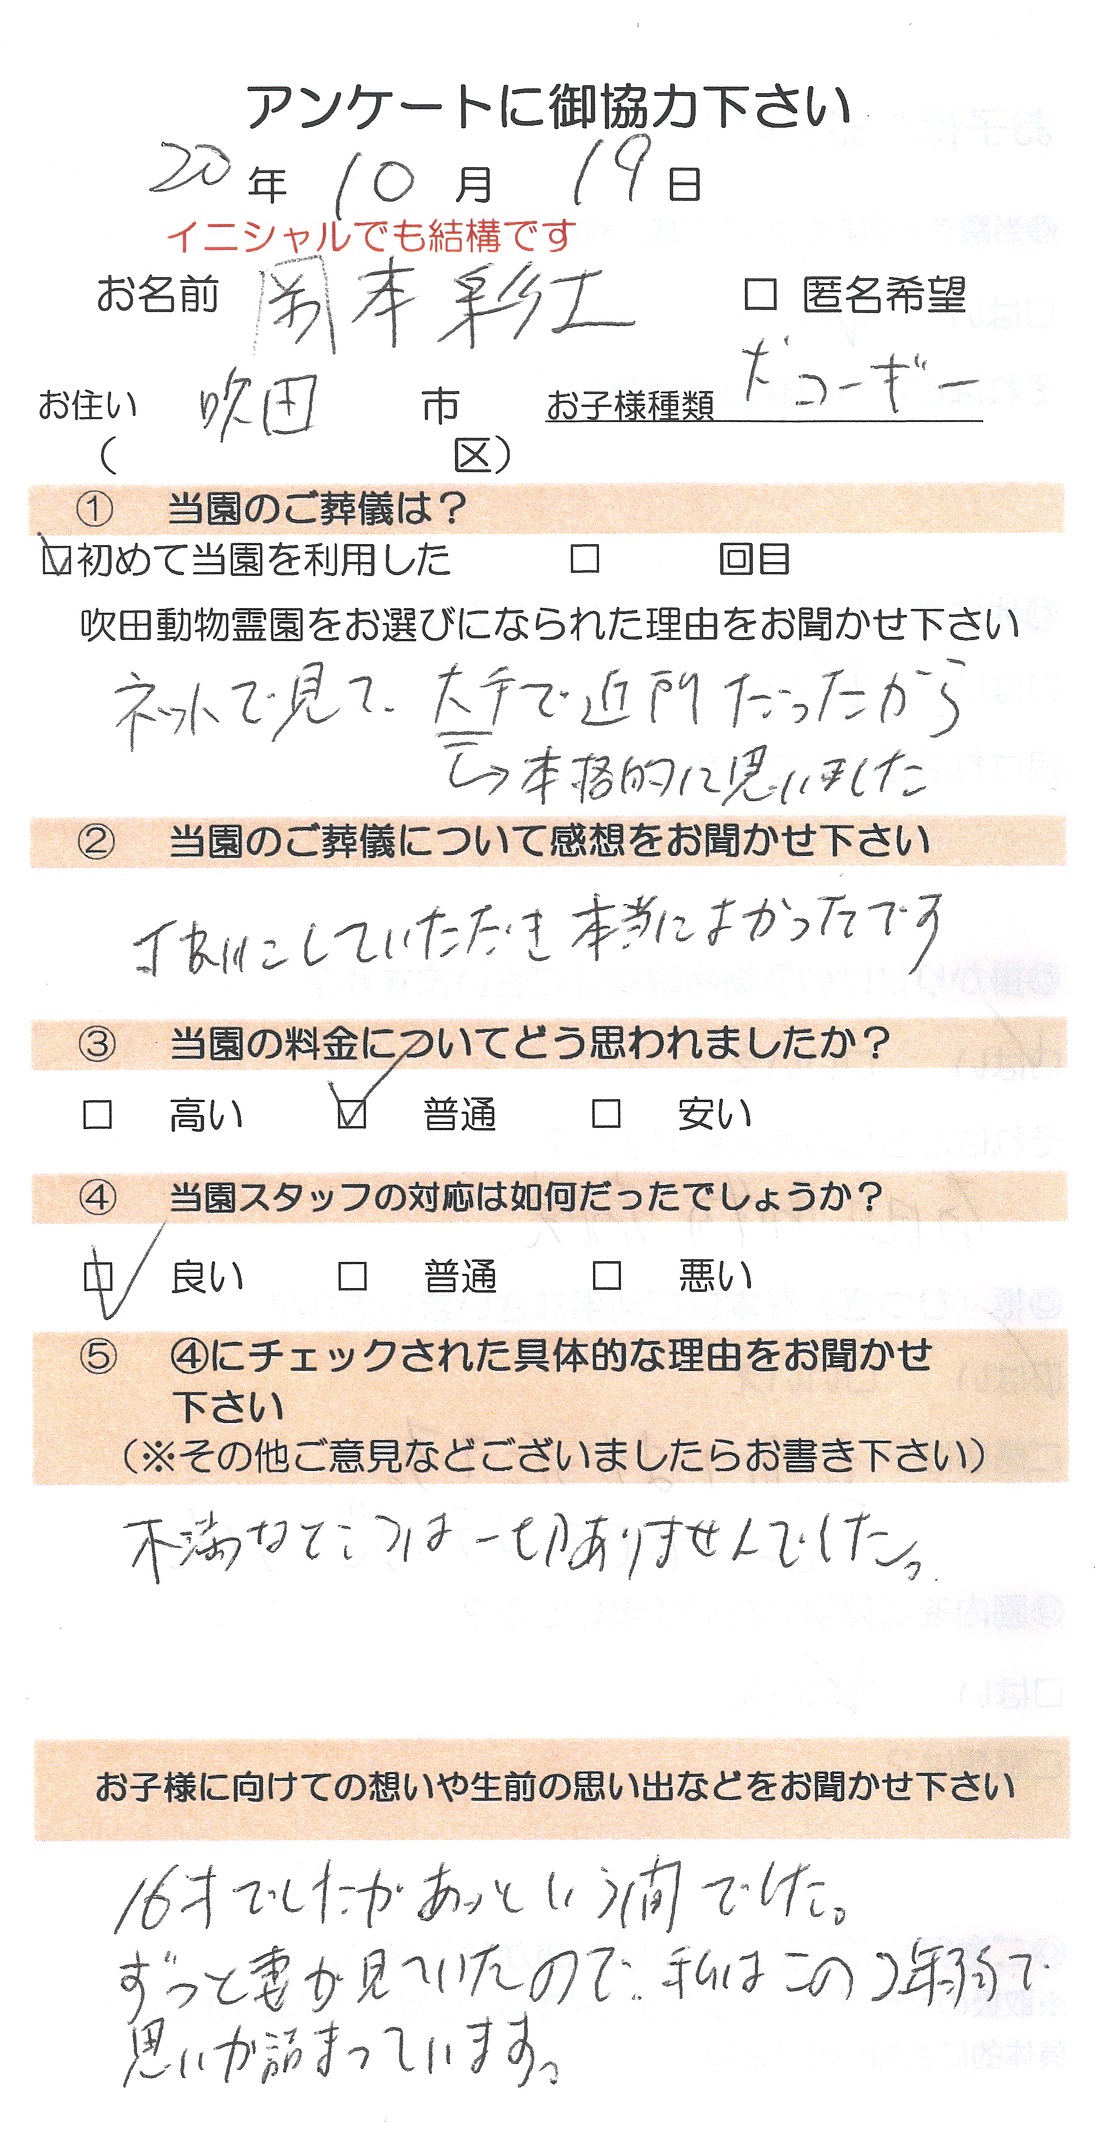 アンケートに御協力下さい
20年 10月 19日
イニシャルでも結構です
お名前 岡本彩土 □ 匿名希望
お住い 吹田 市 お子様種類 犬コーギー
( 区)
① 当園のご葬儀は？
☑初めて当園を利用した □ 回目
吹田動物霊園をお選びになられた理由をお聞かせ下さい
ネットで見て、大手で近所だったから
↳本格的に思いました
② 当園のご葬儀について感想をお聞かせ下さい
していただき本当によかったです
③ 当園の料金についてどう思われましたか？
□ 高い ☑ 普通 □ 安い
④ 当園スタッフの対応は如何だったでしょうか？
☑ 良い □ 普通 □ 悪い
⑤ ④にチェックされた具体的な理由をお聞かせ
下さい
（※その他ご意見などございましたらお書き下さい）
不満なところは一切ありませんでした。
お子様に向けての想いや生前の思い出などをお聞かせ下さい
16才でしたがあっという間でした。
ずっと妻が見ていたので、私はこの2年弱で
思いが詰まっています。